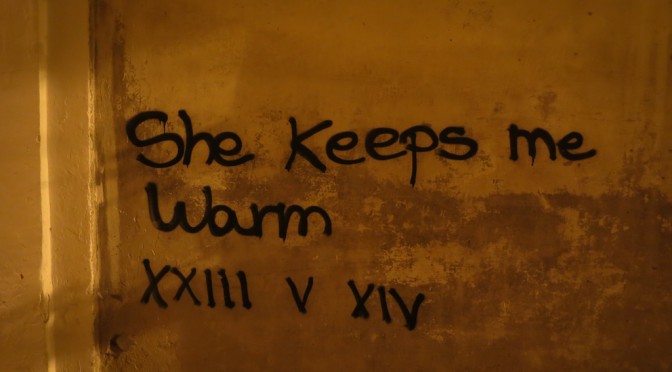 She Keeps me
Warm
XXIII V XIV